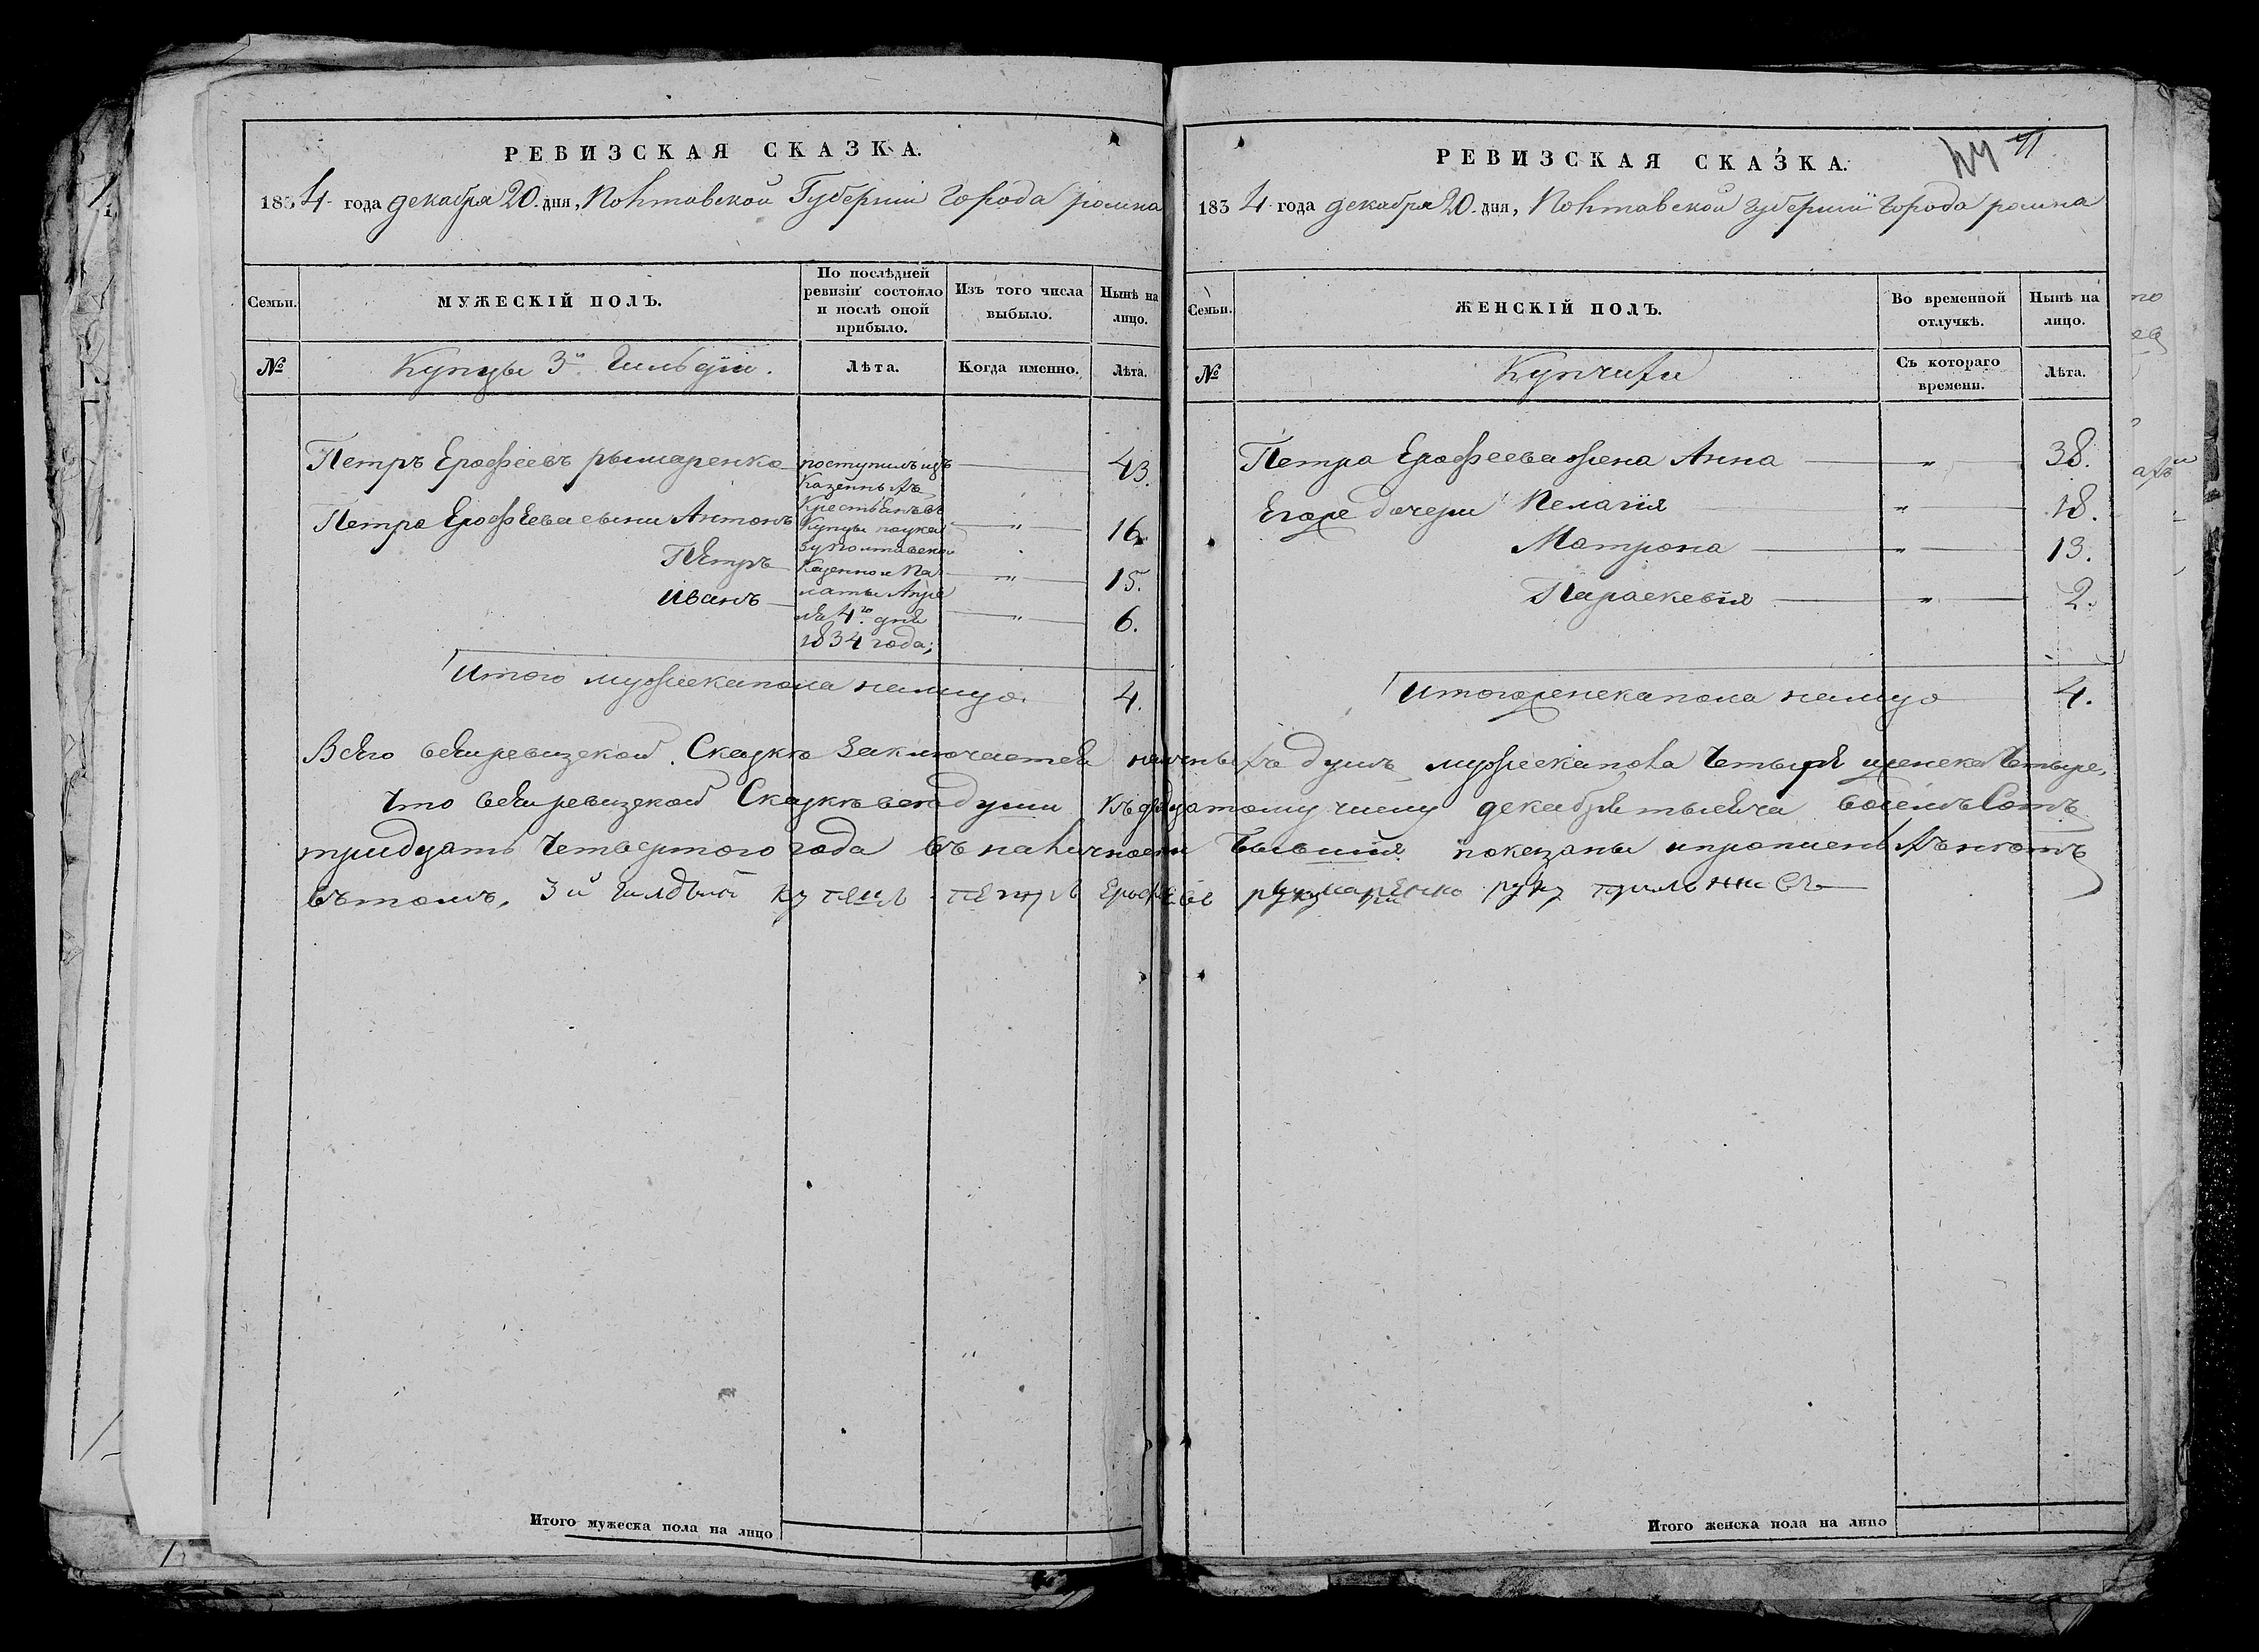 РЕВИЗСКАЯ СКАЗКА.
1834 года декабря 20 дня, Полтавской Губернии Города ромна
Семьи.
МУЖЕСКІЙ ПОЛЪ.
По послѣдней ревизіи состояло и послѣ оной прибыло.
Изъ того числа выбыло.
Нынѣ на лицо.
№
Купцы 3й Гильдіи.
Лѣта.
Когда именно.
Лѣта.
Петръ Ерофеевъ рымаренко 43.
Петра Ерофеева сыни Антонъ " 16.
Петръ " 15.
Иванъ " 6.
поступилъ изъ
Казенныхъ
Крестьянъ въ
Купцы по ука
зу полтавской
Казенной Па
латы Апре
ля 4го дня
1834 года;
Итого мужеска пола налицо. 4.
РЕВИЗСКАЯ СКАЗКА.
71
1834 года декабря 20 дня, Полтавской губернии Города ромна
Семьи.
ЖЕНСКІЙ ПОЛЪ.
Во временной отлучкѣ.
Нынѣ на лицо.
№
Купчихи
Съ котораго времени.
Лѣта.
Петра Ерофеева жена Анна " 38.
Егоже дочери Пелагія " 18.
Матрона " 13.
Параскевія " 2.
Итого женска пола налицо 4.
Всего в сей ревизской Сказке Заключается наличныхъ душъ мужеска пола Четыре и женска Четыре,
Что в сей ревизской Сказке все души Къ двадцатому числу декабря тысяча восемъ Сотъ
тридцать Четвертого года въ наличности бывшия показаны и прописныхъ нетъ
Въ томъ, 3й Гилдыи купецъ петръ Ерофеевъ рымаренко руку приложилъ
Итого мужеска пола на лицо
Итого женска пола на лицо